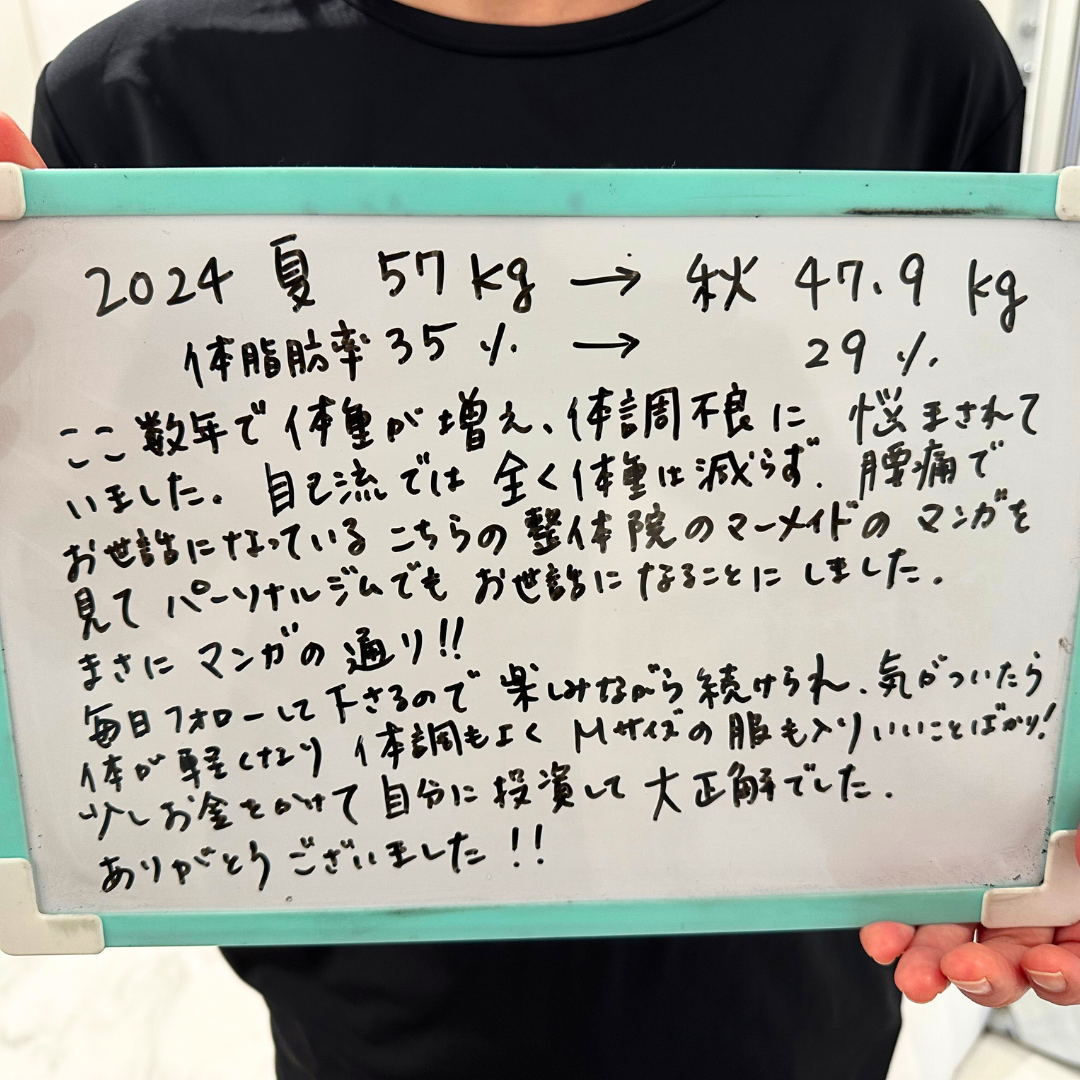 2024 夏 57kg → 秋 47.9 kg
体脂肪率 35% → 29%
ここ数年で体重が増え、体調不良に 悩まされて
いました。自己流では全く体重は減らず、腰痛で
お世話になっているこちらの整体院のマーメイドのマンガを
見てパーソナルジムでもお世話になることにしました。
まさにマンガの通り!!
毎日フォローして下さるので楽しみながら続けられ、気がついたら
体が軽くなり体調もよくMサイズの服も入りいいことばかり!
少しお金をかけて自分に投資して大正解でした。
ありがとうございました!!